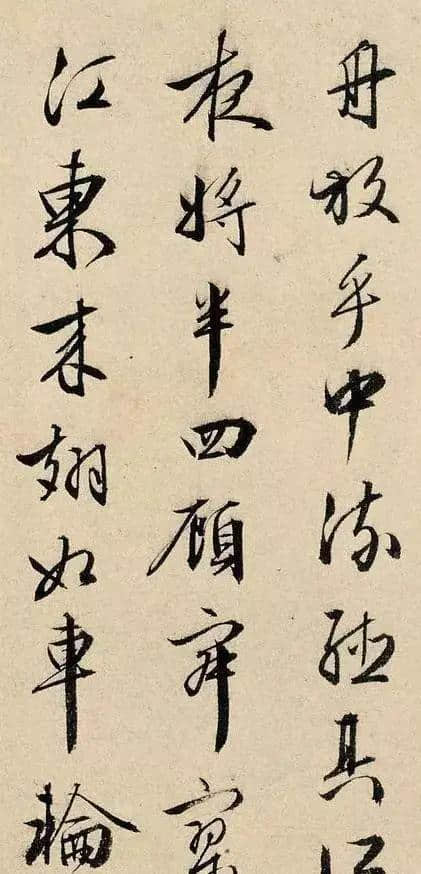 舟放乎中流聽其
夜將半四顧寂寥
江東來翅如車輪